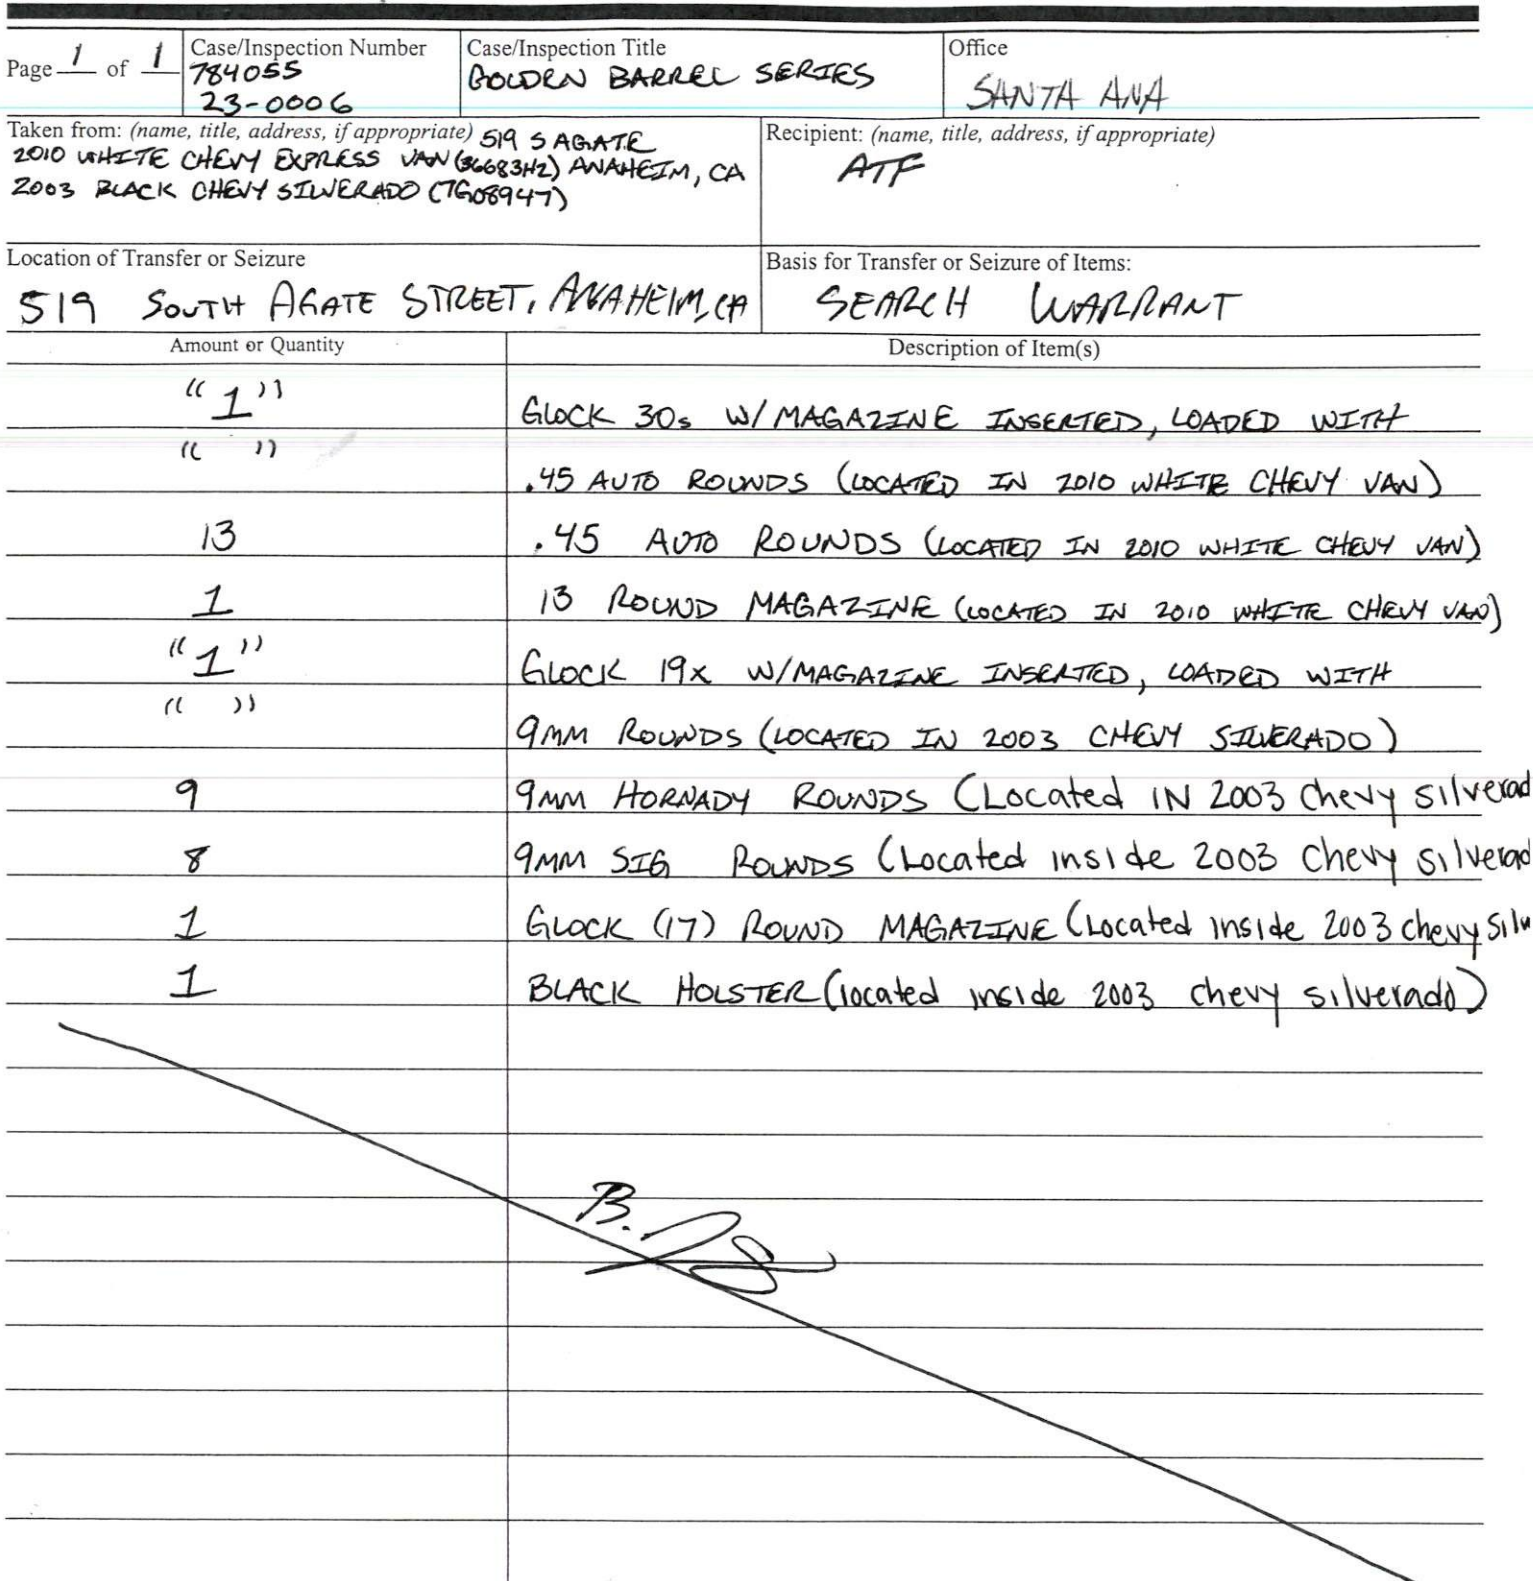 Page 1 of 1
Case/Inspection Number
784055
23-0006
Case/Inspection Title
GOLDEN BARREL SERIES
Office
SANTA ANA
Taken from: (name, title, address, if appropriate) 519 S AGATE
2010 WHITE CHEVY EXPRESS VAN (36683H2) ANAHEIM, CA
2003 BLACK CHEVY SILVERADO (7G08947)
Recipient: (name, title, address, if appropriate)
ATF
Location of Transfer or Seizure
519 SOUTH AGATE STREET, ANAHEIM, CA
Basis for Transfer or Seizure of Items:
SEARCH WARRANT
Amount or Quantity Description of Item(s)
"1" GLOCK 30s W/MAGAZINE INSERTED, LOADED WITH
" " .45 AUTO ROUNDS (LOCATED IN 2010 WHITE CHEVY VAN)
13 .45 AUTO ROUNDS (LOCATED IN 2010 WHITE CHEVY VAN)
1 13 ROUND MAGAZINE (LOCATED IN 2010 WHITE CHEVY VAN)
"1" GLOCK 19x W/MAGAZINE INSERTED, LOADED WITH
" " 9MM ROUNDS (LOCATED IN 2003 CHEVY SILVERADO)
9 9MM HORNADY ROUNDS (Located IN 2003 Chevy silverad
8 9MM SIG ROUNDS (Located inside 2003 Chevy silverad
1 GLOCK (17) ROUND MAGAZINE (Located inside 2003 chevy silv
1 BLACK HOLSTER (located inside 2003 chevy silverado)
B.